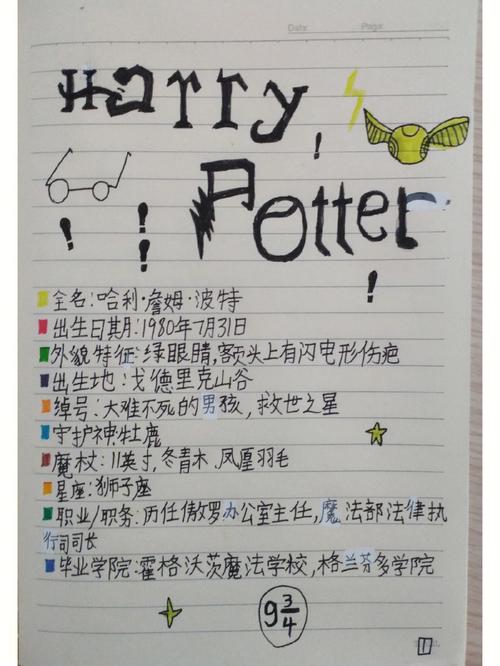 Date: Page:
Harry
Potter
全名:哈利·詹姆·波特
出生日期:1980年7月31日
外貌特征:绿眼睛,额头上有闪电形伤疤
出生地:戈德里克山谷
绰号:大难不死的男孩,救世之星
守护神:牡鹿
魔杖:11英寸,冬青木.凤凰羽毛
星座:狮子座
职业/职务:历任傲罗办公室主任,魔法部法律执
行司司长
毕业学院:霍格沃茨魔法学校,格兰芬多学院
9 3/4
1